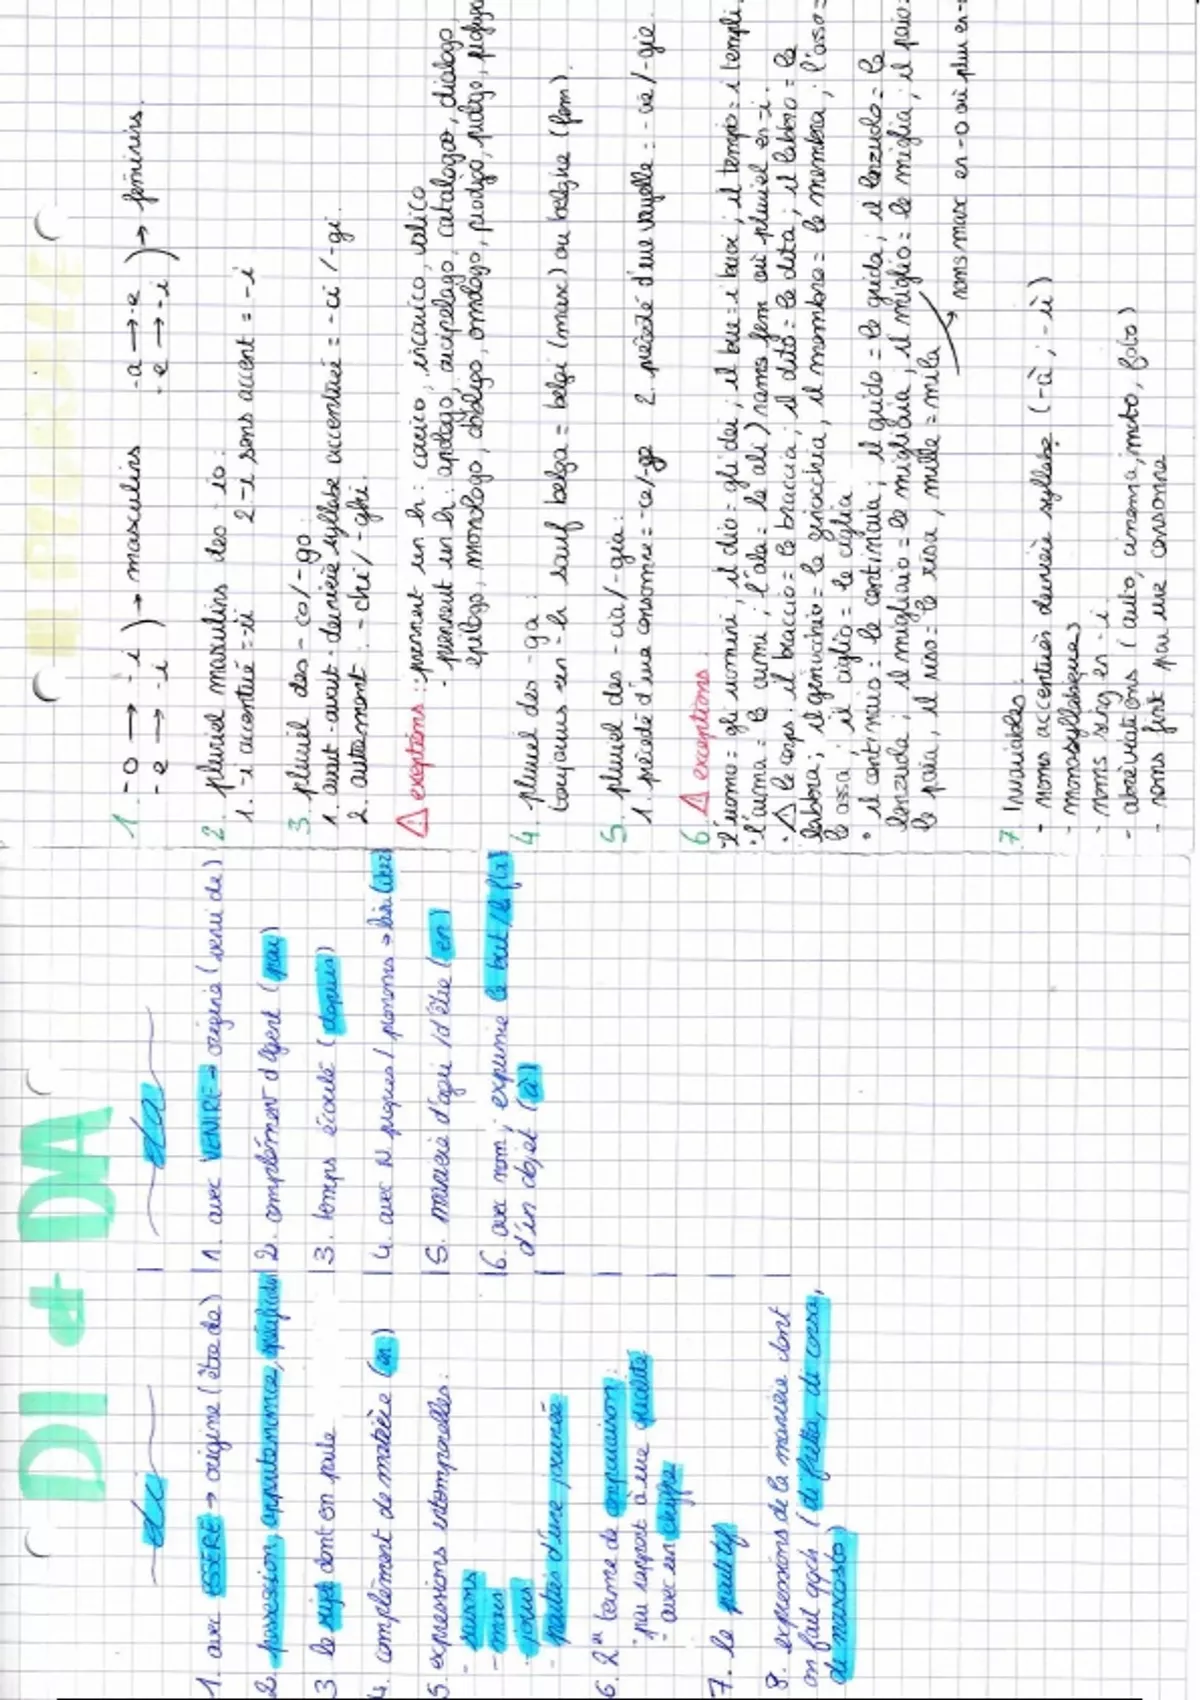 DI et DA
di
1. avec ESSERE → origine (être de)
2. possession, appartenance, spécification
3 le sujet dont on parle
4. complément de matière (en)
5. expressions intemporelles:
- saisons
- mois
- jours
- parties d'une journée
6. 2e terme de comparaison:
- par rapport à une qualité
- avec un chiffre
7. le partitif
8. expressions de la manière dont
on fait qqch (di fretta, di corsa,
di nascosto)
da
1. avec VENIRE → origine (venir de)
2. complément d'agent (par)
3. temps écoulé (depuis)
4. avec N propres / pronoms → lieu (chez)
5. manière d'agir / d'être (en)
6. avec nom, exprime le but /
d'un objet (à)
LE PLURIEL
1. -o → -i ) → masculins -a → -e ) → féminins.
-e → -i -e → -i
2. pluriel masculins des -io:
1. -i accentué = -ii 2 -i sans accent = -i
3. pluriel des -co/-go:
1. avant-avant-dernière syllabe accentuée = -ci / -gi.
2. autrement : -chi / -ghi.
⚠ exceptions : - prennent un h: carico, incarico, valico
- prennent un h: apologo, arcipelago, catalogo, dialogo
epilogo, monologo, obbligo, omologo, prodigo,
4. pluriel des -ga:
toujours un -h sauf belga = belgi (masc) ou belghe (fem).
5. pluriel des -cia/-gia:
1. précédé d'une consonne = -ce/-ge 2. précédé d'une voyelle = -cie/-gie.
6. ⚠ exceptions:
l'uomo = gli uomini, il dio = gli dei, il bue = i buoi, il tempio = i templi.
• l'arma = le armi, l'ala = le ali) noms fem où pluriel en -i.
• ⚠ le corps. il braccio = le braccia, il dito = le dita, il labbro = le
labbra, il ginocchio = le ginocchia, il membro = le membra, l'osso =
le ossa, il ciglio = le ciglia
• il centinaio = le centinaia, il grido = le grida, il lenzuolo = le
lenzuola, il migliaio = le migliaia, il miglio = le miglia, il paio =
le paia, il riso = le risa, mille = mila
→ noms masc en -o où plur en -a
7. Invariables:
- noms accentués dernière syllabe (-à, -ù)
- monosyllabiques
- noms sing en -i
- abréviations (auto, cinema, moto, foto)
- noms finit par une consonne